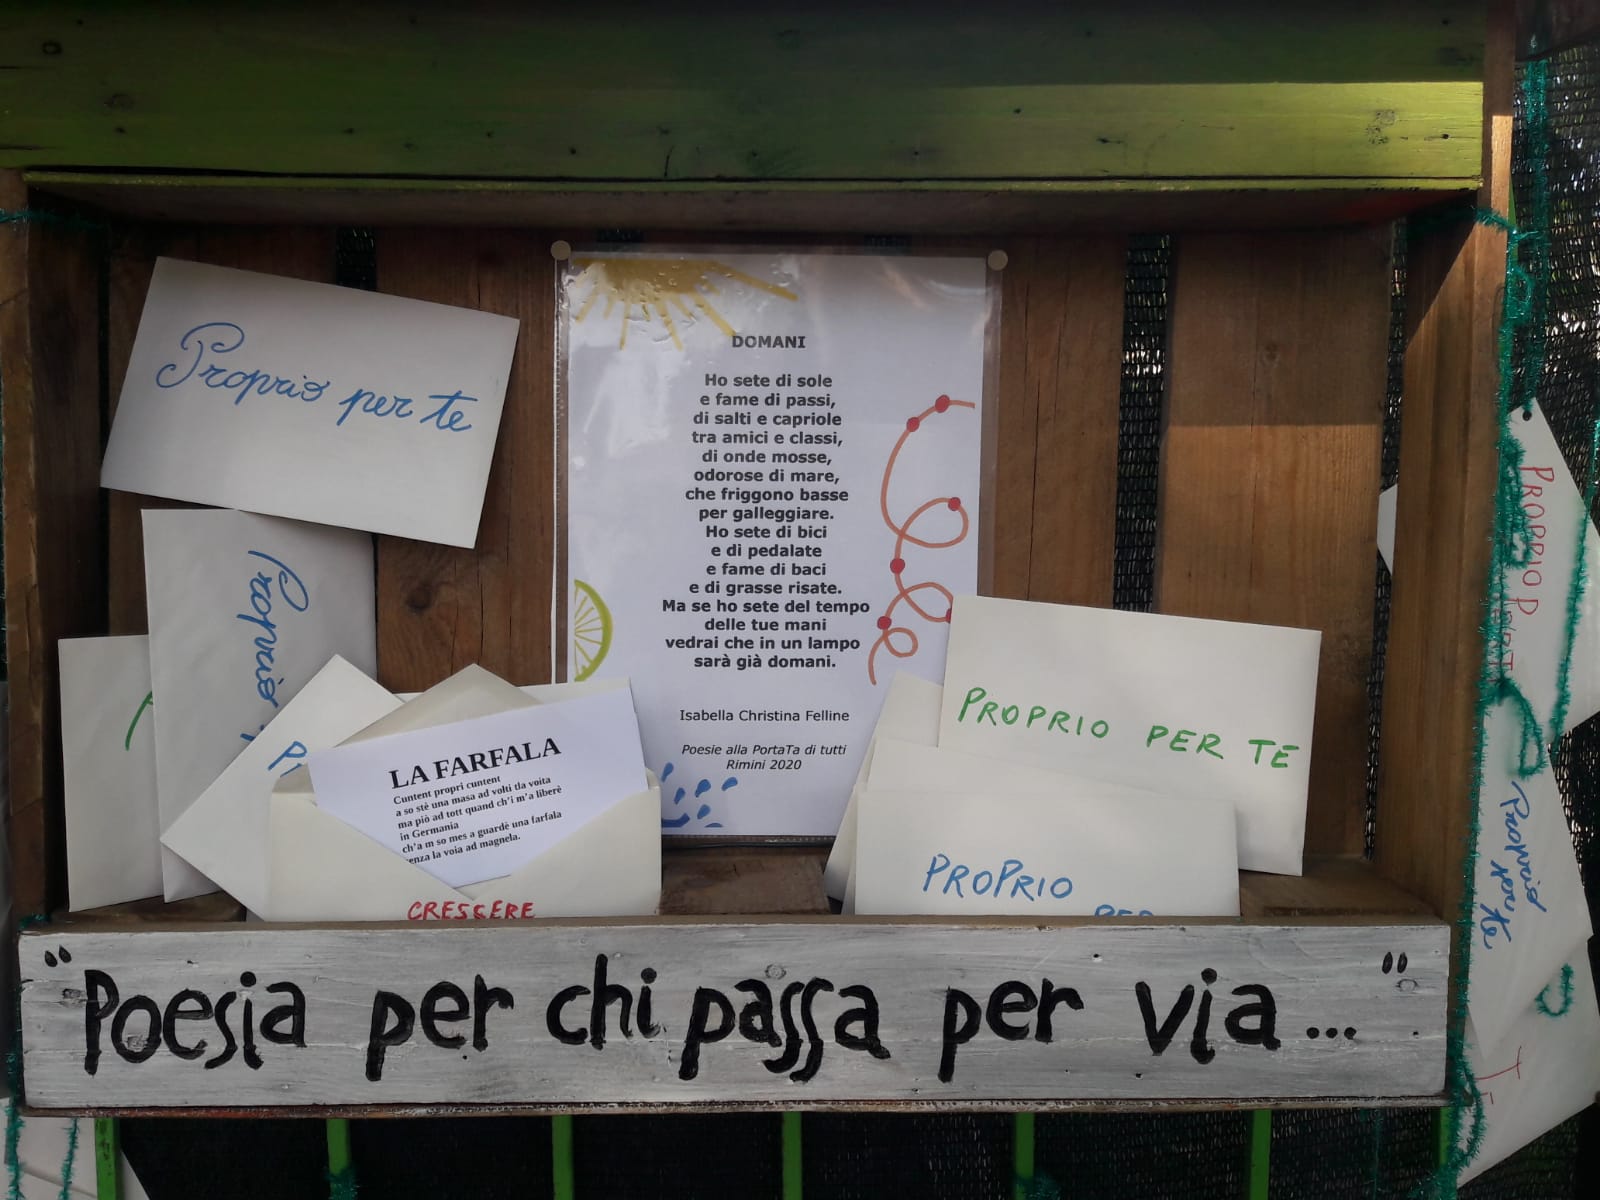 Proprio per te
Proprio
DOMANI
Ho sete di sole
e fame di passi,
di salti e capriole
tra amici e classi,
di onde mosse,
odorose di mare,
che friggono basse
per galleggiare.
Ho sete di bici
e di pedalate
e fame di baci
e di grasse risate.
Ma se ho sete del tempo
delle tue mani
vedrai che in un lampo
sarà già domani.
Isabella Christina Felline
Poesie alla PortaTa di tutti
Rimini 2020
LA FARFALA
Cuntent propri cuntent
a so stè una masa ad volti tla voita
ma piò ad tott quand ch'i m'a liberè
in Germania
ch'a m so mes a guardè una farfala
senza la voia ad magnela.
CRESCERE
PROPRIO PER TE
PROPRIO
PER
PROPRIO P
Proprio
per te
"Poesia per chi passa per via..."